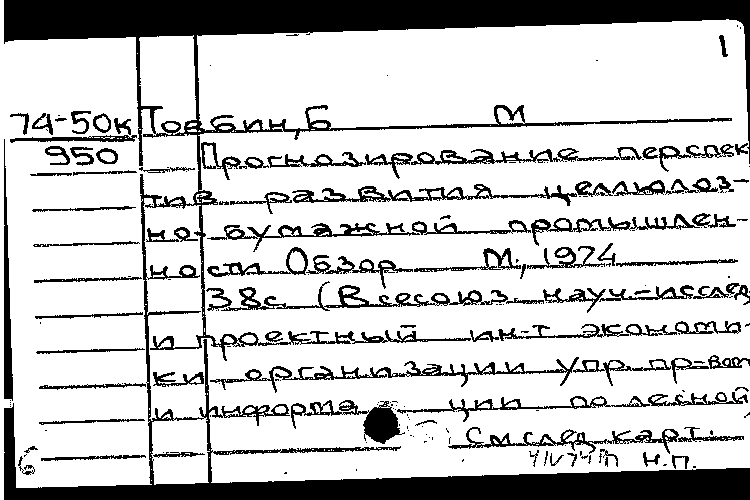 1
74-50к Товбин, Б М
950 Прогнозирование перспек
тив развития целлюлоз-
но-бумажной промышлен-
ности Обзор М., 1974
38с. (Всесоюз. науч-исслед
и проектный ин-т экономи-
ки, организации упр. пр-вом
и информации по лесной
См след карт.
н.п.
6